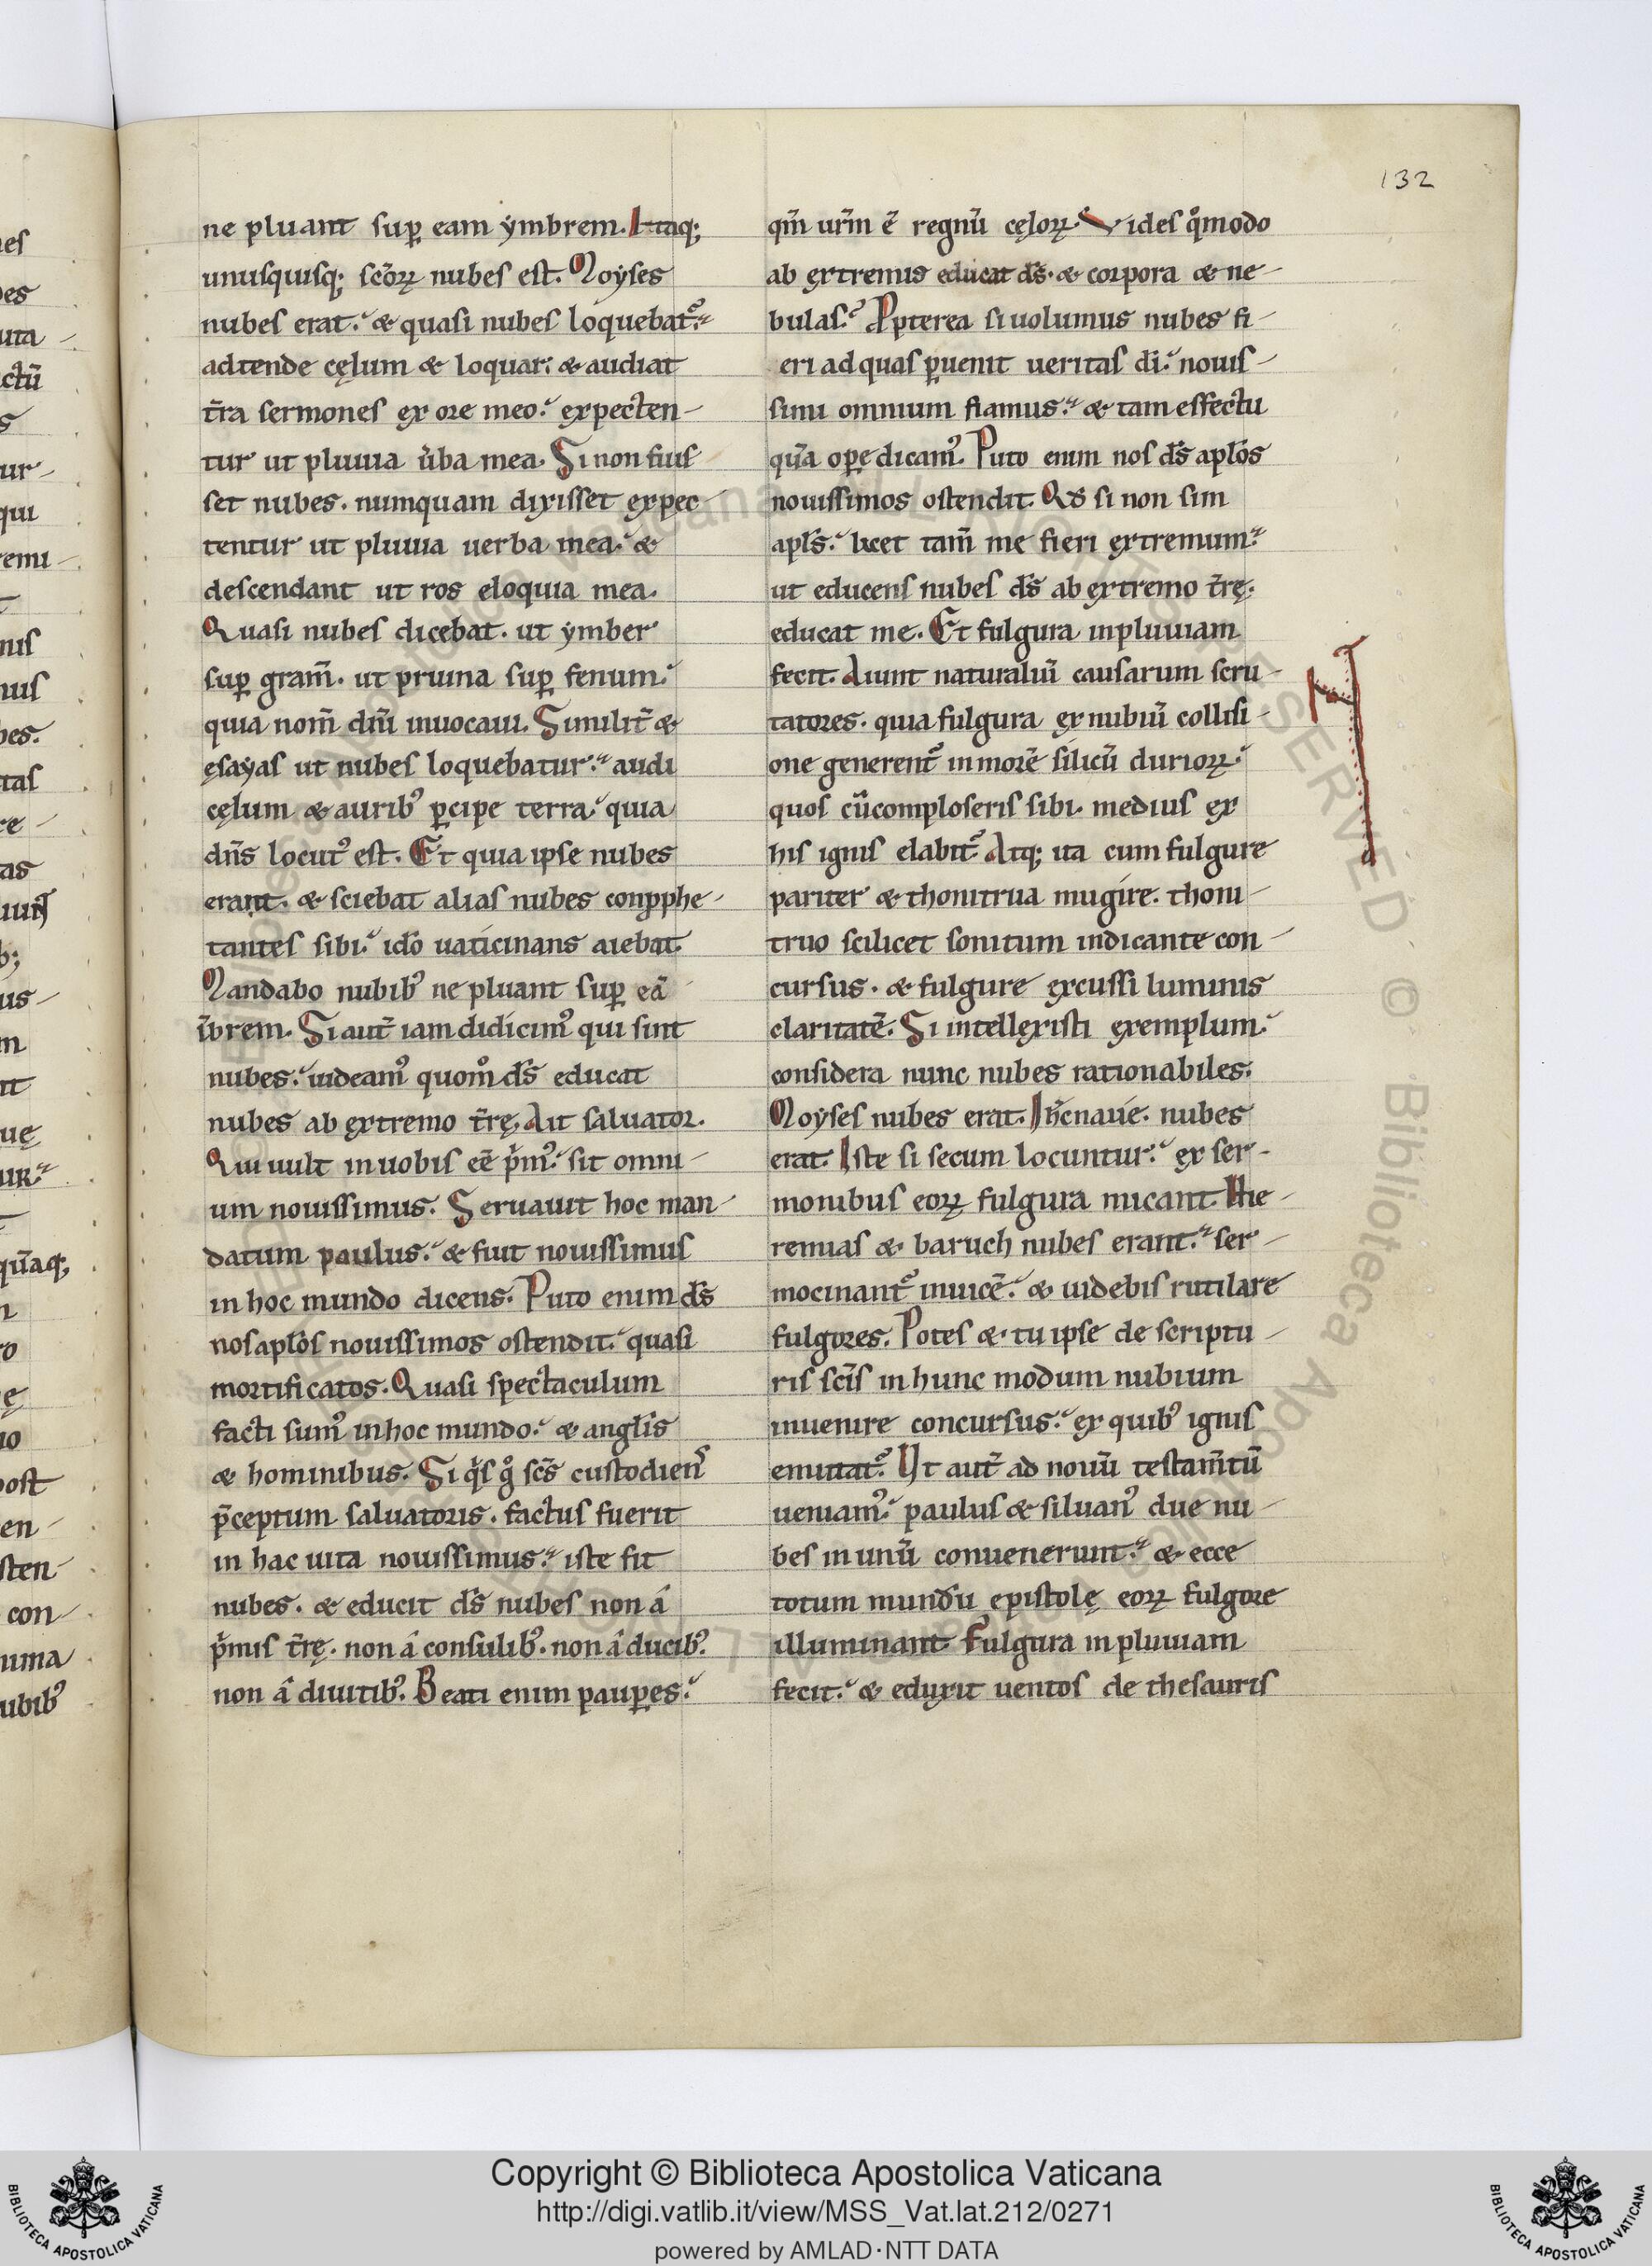 132
ne pluant suꝑ eam ẏmbrem. Itaq;
unusquisq; sc̄oꝝ nubes est. Moẏses
nubes erat. & quasi nubes loquebat᷒.
adtende cęlum & loquar. & audiat
t̄ra sermones ex ore meo. expecten-
tur ut pluuia ūba mea. Si non fuis
set nubes. numquam dixisset expec-
tentur ut pluuia uerba mea. &
descendant ut ros eloquia mea.
Quasi nubes dicebat. ut ẏmber
suꝑ gram̄. ut pruina suꝑ fenum.
quia nom̄ dn̄i inuocaui. Similit̄ &
ęsaẏas ut nubes loquebatur. audi
cęlum & aurib᷒ ꝑcipe terra. quia
dn̄s locut᷒ est. Et quia ipse nubes
erant. & sciebat alias nubes conꝓphe-
tantes sibi. idō uaticinans aiebat.
Mandabo nubib᷒ ne pluant suꝑ eā
ībrem. Si aut̄ iam didicim᷒ qui sint
nubes. uideam᷒ quom̊ ds̄ educat
nubes ab extremo t̄rę. Ait saluator.
Qui uult in uobis eē p̄m᷒. sit omni-
um nouissimus. Seruauit hoc man-
datum paulus. & fuit nouissimus
in hoc mundo dicens. Puto enim ds̄
nos apl̄os nouissimos ostendit. quasi
mortificatos. Quasi spectaculum
facti sum᷒ in hoc mundo. & angl̄is
& hominibus. Si q̇s g̊ sc̄s custodien᷒
p̄ceptum saluatoris. factus fuerit
in hac uita nouissimus. iste fit
nubes. & educit ds̄ nubes non á
p̄mis t̄rę. non á consulib᷒. non á ducib᷒.
non á diuitib᷒. Beati enim pauꝑes.
qm̄ ur̄m ē regnū cęloꝝ. Vides q̊modo
ab extremis educat ds̄. & corpora & ne-
bulas. Ꝓpterea si uolumus nubes fi-
eri ad quas ꝑuenit ueritas dī. nouis-
simi omnium fiamus. & tam effectu
qūa oꝑe dicam᷒. Puto enim nos ds̄ apl̄os
nouissimos ostendit. Qđ si non sim
apl̄s. licet tam̄ me fieri extremum.
ut educens nubes ds̄ ab extremo t̄rę.
educat me. Et fulgura in pluuiam
fecit. Aiunt naturaliū causarum scru-
tatores. quia fulgura ex nubiū collisi-
one generent᷒ in morē silicū durioꝝ.
quos cū comploseris sibi. medius ex
his ignis elabit᷒. Atq; ita cum fulgure
pariter & thonitrua mugire. thoni-
truo scilicet sonitum indicante con-
cursus. & fulgure excussi luminis
claritatē. Si intellexisti exemplum.
considera nunc nubes rationabiles.
Moẏses nubes erat. Ih̄c naue. nubes
erat. Iste si secum locuntur. ex ser-
monibus eoꝝ fulgura micant. Hie-
remias & baruch nubes erant. ser-
mocinant᷒ inuicē. & uidebis rutilare
fulgores. Potes & tu ipse de scriptu-
ris sc̄is in hunc modum nubium
inuenire concursus. ex quib᷒ ignis
emittat᷒. Ut aut̄ ad nouū testam̄tū
ueniam᷒. paulus & siluan᷒ due nu-
bes in unū conuenerunt. & ecce
totum mundū epistolę eoꝝ fulgore
illuminant. Fulgura in pluuiam
fecit. & eduxit uentos de thesauris
Copyright © Biblioteca Apostolica Vaticana
http://digi.vatlib.it/view/MSS_Vat.lat.212/0271
powered by AMLAD·NTT DATA